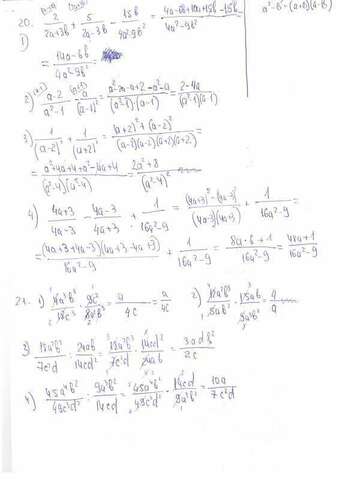 20. 2/(2a+3b) + 5/(2a-3b) - 15b/(4a²-9b²) = (4a-6b+10a+15b-15b)/(4a²-9b²)
a²-b²=(a+b)(a-b)
1)
= (14a-6b)/(4a²-9b²) =
2) (a-2)/(a²-1) - a/(a-1)² = (a²-2a-a+2-a²-a)/((a²-1)·(a-1)) = (2-4a)/((a²-1)(a-1))
3) 1/(a-2)² + 1/(a+2)² = ((a+2)²+(a-2)²)/((a-2)(a-2)(a+2)(a+2)) =
= (a²+4a+4+a²-4a+4)/((a²-4)(a²-4)) = (2a²+8)/(a²-4)²
4) (4a+3)/(4a-3) - (4a-3)/(4a+3) + 1/(16a²-9) = ((4a+3)²-(4a-3)²)/((4a-3)(4a+3)) + 1/(16a²-9) =
= ((4a+3+4a-3)(4a+3-4a+3))/(16a²-9) + 1/(16a²-9) = (8a·6+1)/(16a²-9) = (48a+1)/(16a²-9)
21. 1) = a/4c
2) = 9/a
3) 18a²b³/7c³d : 24ab/14cd² = 18a²b³/7c³d · 14cd²/24ab = 3adb²/2c
4) 45a⁴b²/49c³d² : 9a³b²/14cd = 45a⁴b²/49c³d² · 14cd/9a³b² = 10a/7c²d